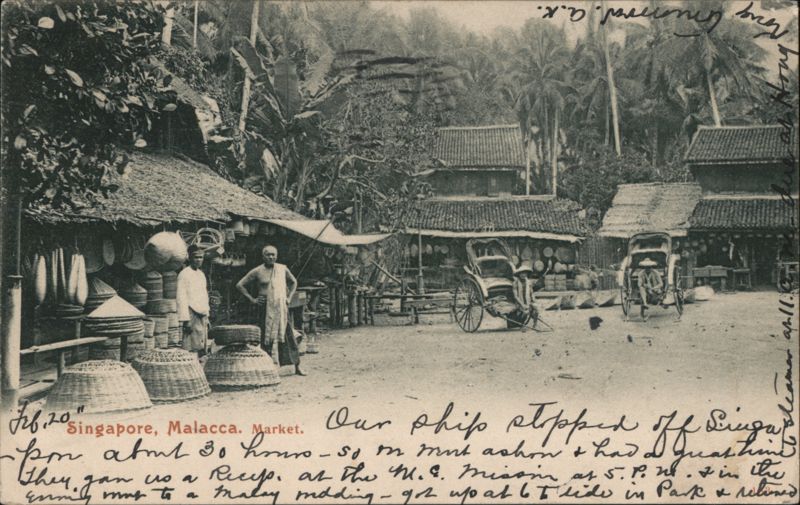 Feb. 20"
Singapore, Malacca. Market.
Our ship stopped off Singa
-pon about 30 hours - so we went ashore & had a great time
They gave us a Recep. at the M.E. Mission at 5 P.M. & in the
evening went to a Malay wedding - got up at 6 to ride in Park & returned
to steamer at 11.
due at Hong
Kong